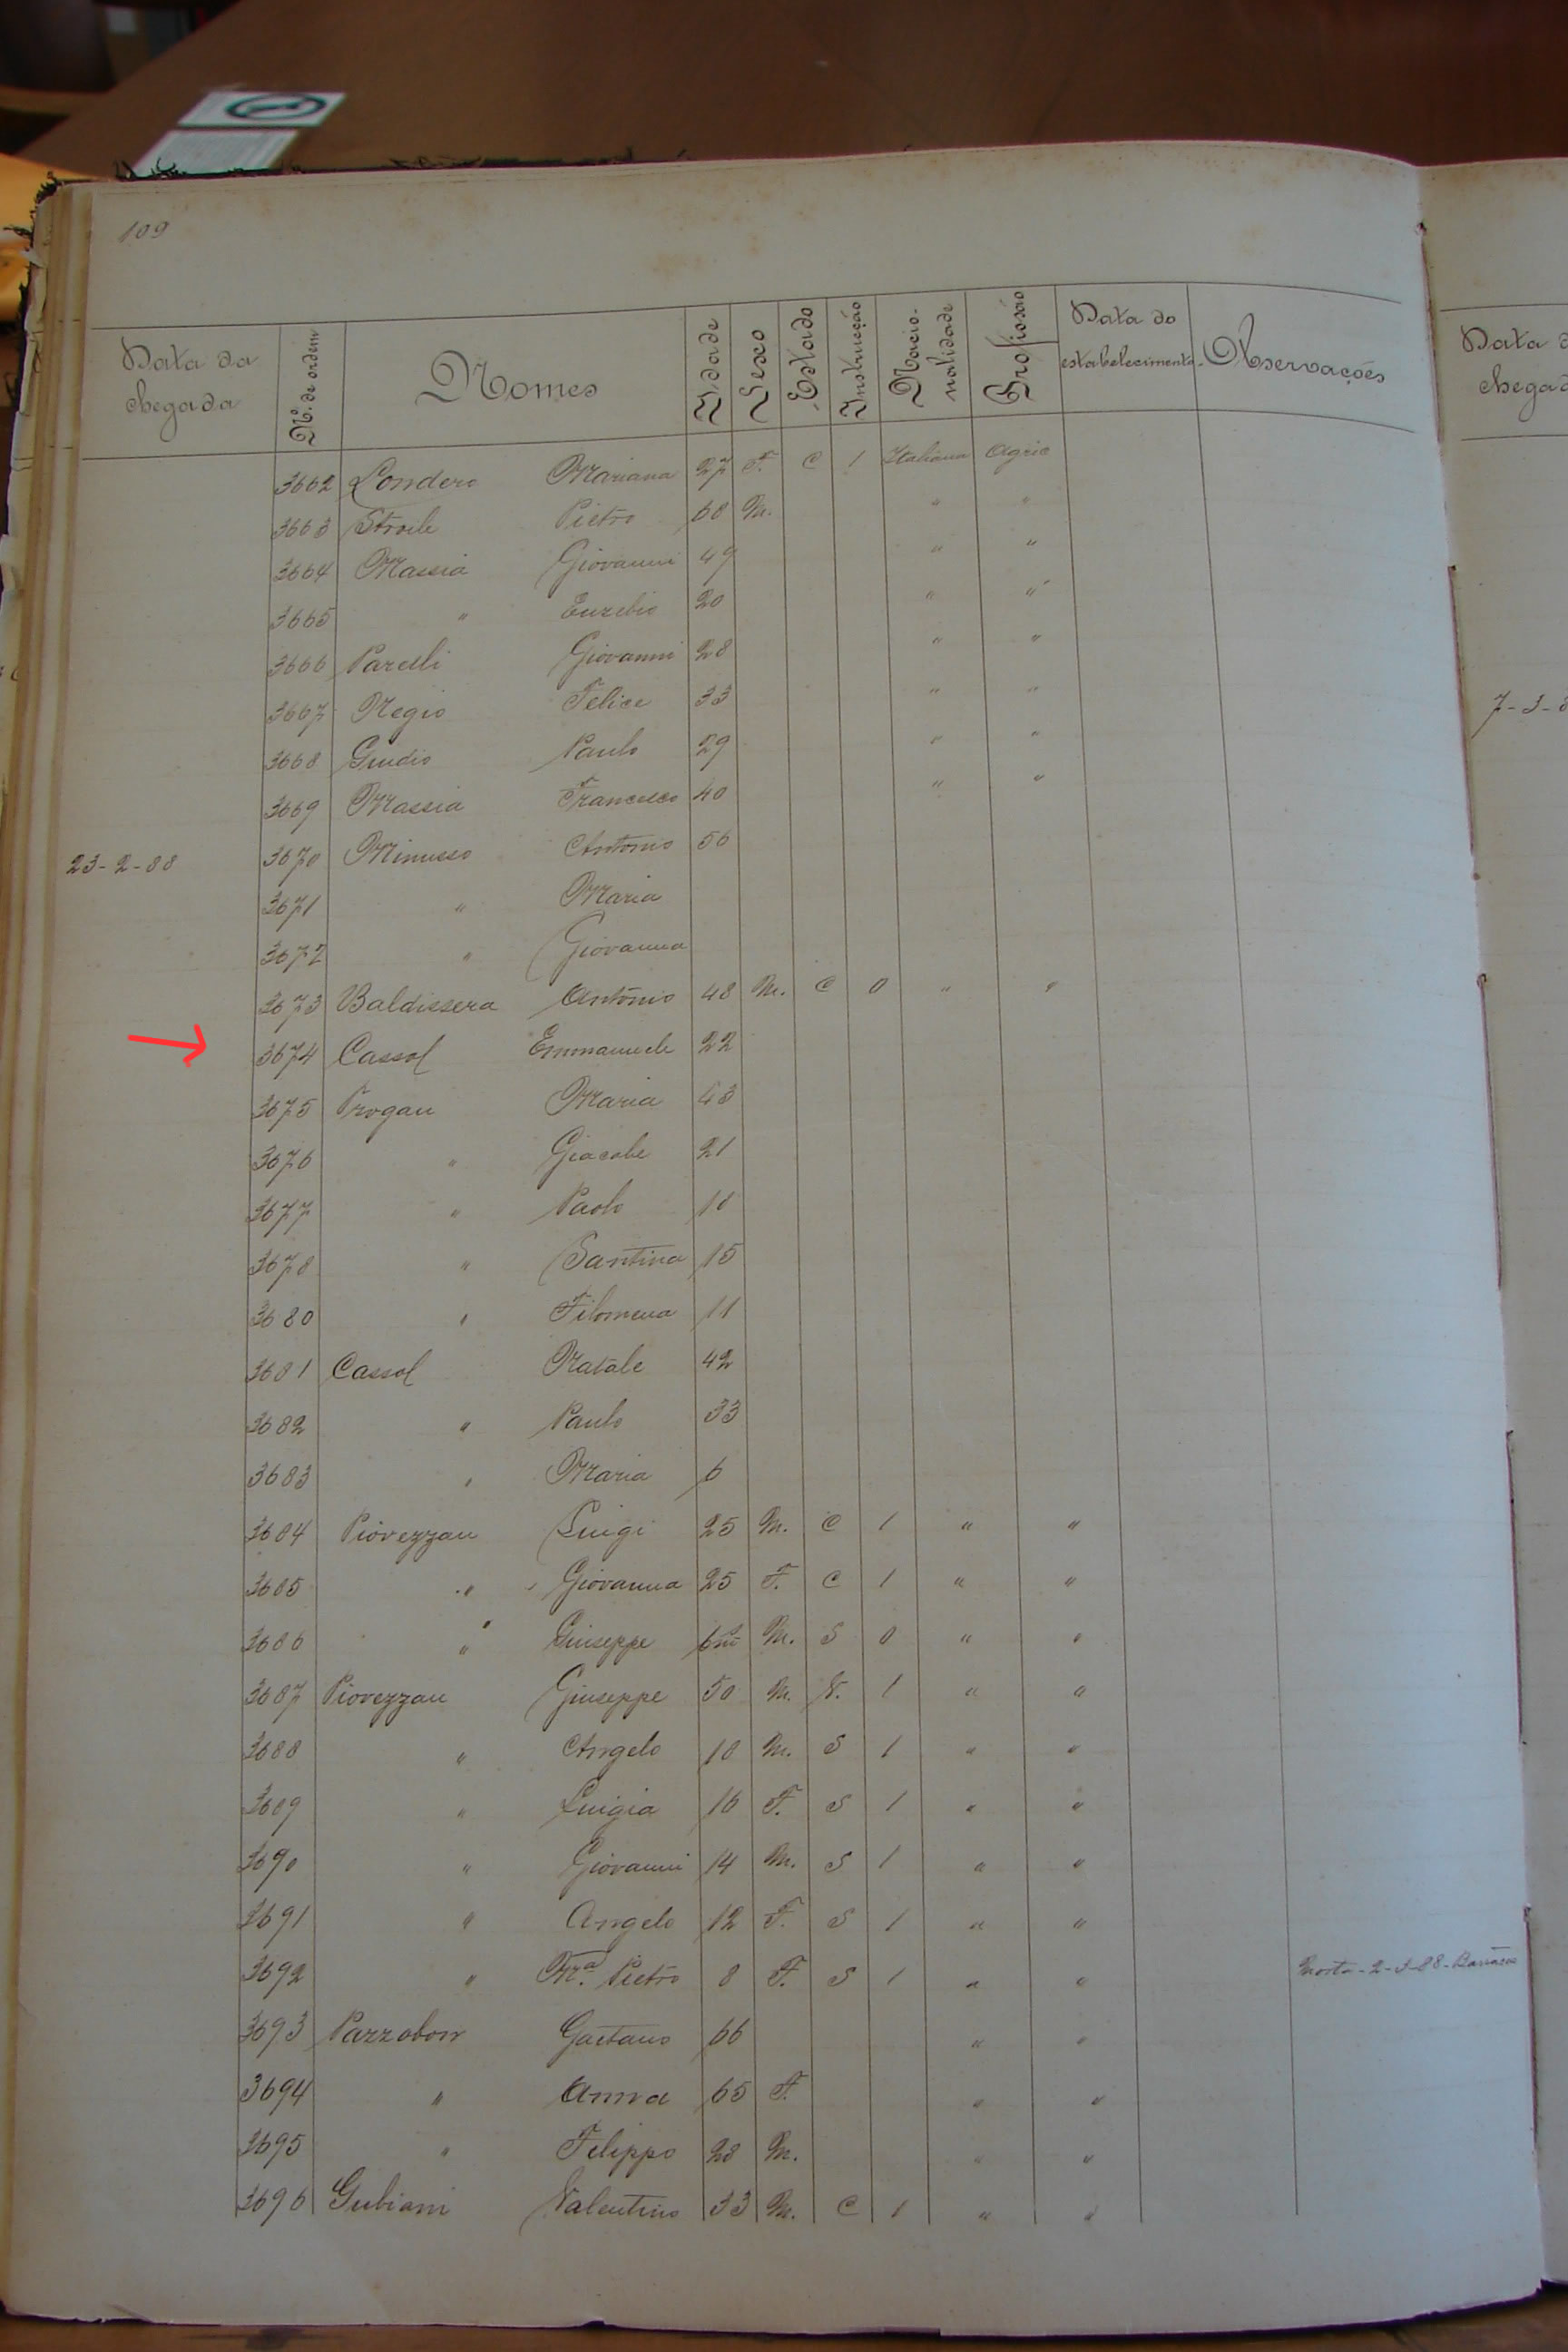 109
Data da chegada Nº. de ordem Nomes Idade Sexo Estado Instrucção Nacionalidade Profissão Data do estabelecimento Observações
3662 Londero Mariana 27 F. C 1 Italiana Agric
3663 Stroile Pietro 68 M. " "
3664 Massia Giovanni 49 " "
3665 " Euzebio 20 " "
3666 Parelli Giovanni 28 " "
3667 Negio Felice 33 " "
3668 Giudio Paulo 29 " "
3669 Massia Francesco 40 " "
23-2-88 3670 Minusso Antonio 56
3671 " Maria
3672 " Giovanna
3673 Baldissera Antônio 48 M. C 0 " "
3674 Cassol Emmanuele 22
3675 Progau Maria 43
3676 " Giacobe 21
3677 " Paolo 18
3678 " Santina 15
3680 " Filomena 11
3681 Cassol Natale 42
3682 " Paulo 33
3683 " Maria 6
3684 Piovezzan Luigi 25 M. C 1 " "
3685 " Giovanna 25 F. C 1 " "
3686 " Giuseppe 6m M. S 0 " "
3687 Piovezzan Giuseppe 50 M. V. 1 " "
3688 " Angelo 18 M. S 1 " "
3689 " Luigia 16 F. S 1 " "
3690 " Giovanni 14 M. S 1 " "
3691 " Angelo 12 F. S 1 " "
3692 " Mª. Pietro 8 F. S 1 " " Morta-2-3-88-Barracão
3693 Pazzobon Gaetano 66 " "
3694 " Anna 65 F. " "
3695 " Filippo 28 M. " "
3696 Gubiani Valentino 33 M. C 1 " "
Data d
chegad
7-3-8